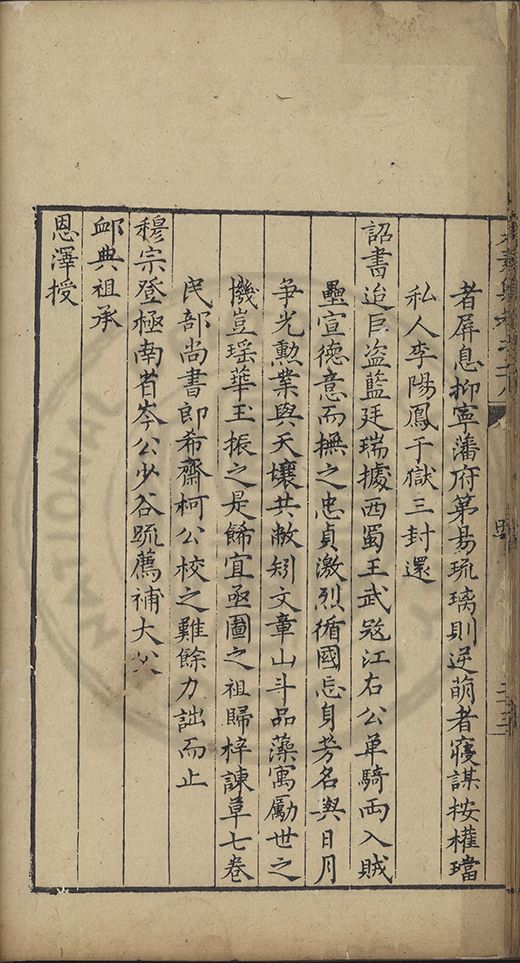 者屏息抑寧藩府第易琉璃則逆萌者寢謀按權璫
私人李陽鳳于獄三封還
詔書迨巨盗藍廷瑞據西蜀王武冦江右公单騎兩入賊
壘宣德意而撫之忠貞激烈循國忘身芳名與日月
争光勲業與天壤共敝矧文章山斗品藻寓勵世之
機豈瑶華玉振之是餙宜亟圖之祖歸梓諫草七卷
民部尚書郎希齋柯公校之難餘力詘而止
穆宗登極南省岑公少谷疏薦補大父
卹典祖承
恩澤授